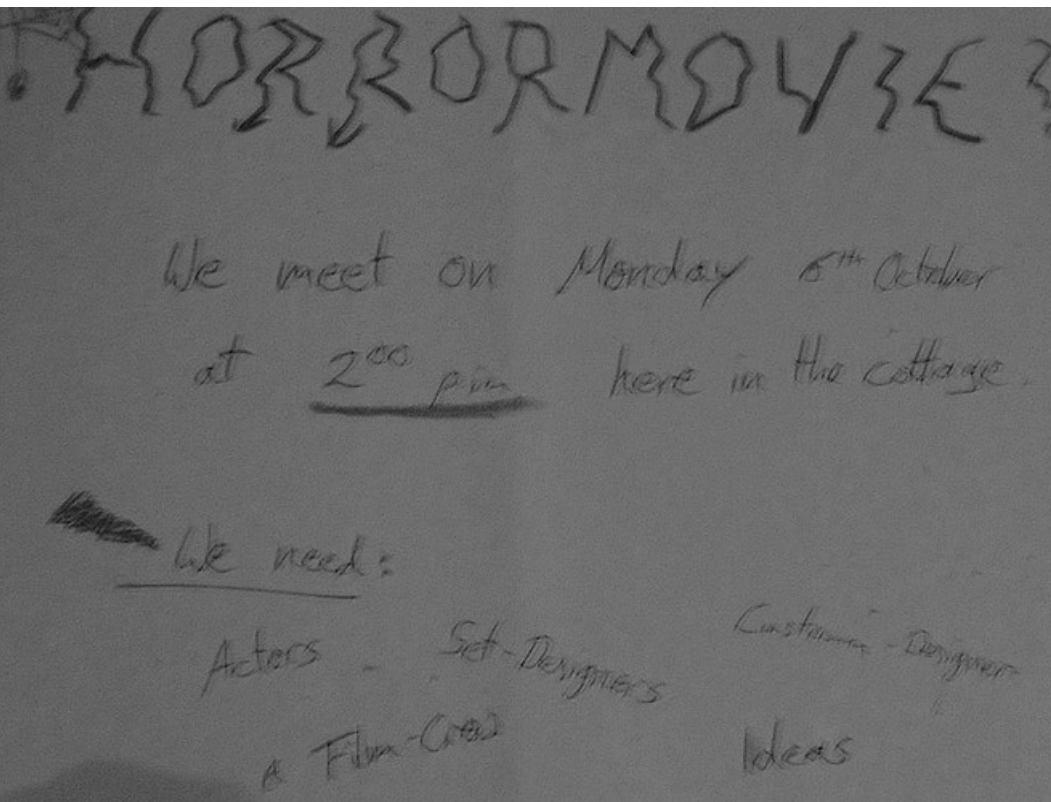 HORRORMOVIE
We meet on Monday 6th October
at 200 pm here in the cottage.
We need:
Actors Set-Designers Costume-Designer
a Film-Crew Ideas